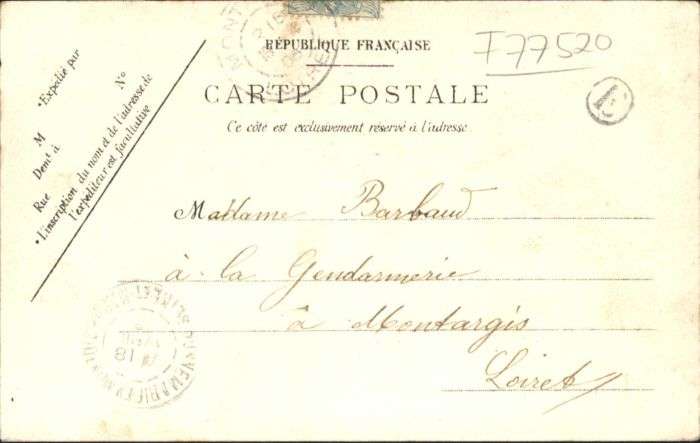 RÉPUBLIQUE FRANÇAISE
T77520
CARTE POSTALE
Ce côté est exclusivement réservé à l'adresse.
•Expédié par
M
Demt à
Rue Nº
•L'inscription du nom et de l'adresse de
l'expéditeur est facultative.
Madame Barbaud
à la Gendarmerie
à Montargis
Loiret